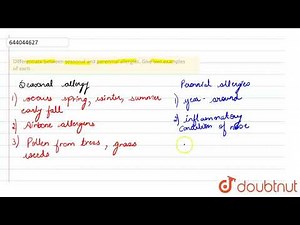 644044627
Differentiate between seasonal and perennial allergies. Give two examples of each.
Seasonal allergy
1) occurs spring, winter, summer
early fall
2) Airbone allergens
3) Pollen from trees, grass
weeds
Perennial allergies
1) year-around
2) inflammatory
condition of nose
doubtnut